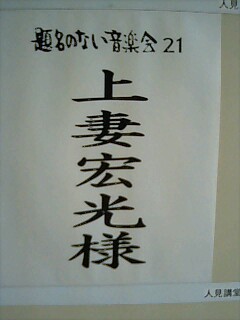 人見
題名のない音楽会21
上妻宏光様
人見講堂